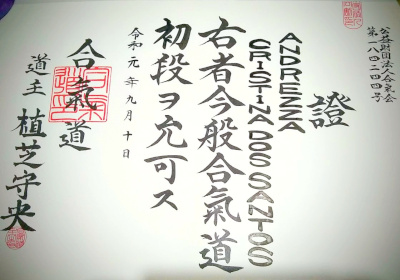 公益財団法人合氣会
第一八四二四四号
證
ANDREZZA
CRISTINA DOS SANTOS
右者今般合氣道
初段ヲ允可ス
令和元年九月十日
合氣道
道主 植芝守央